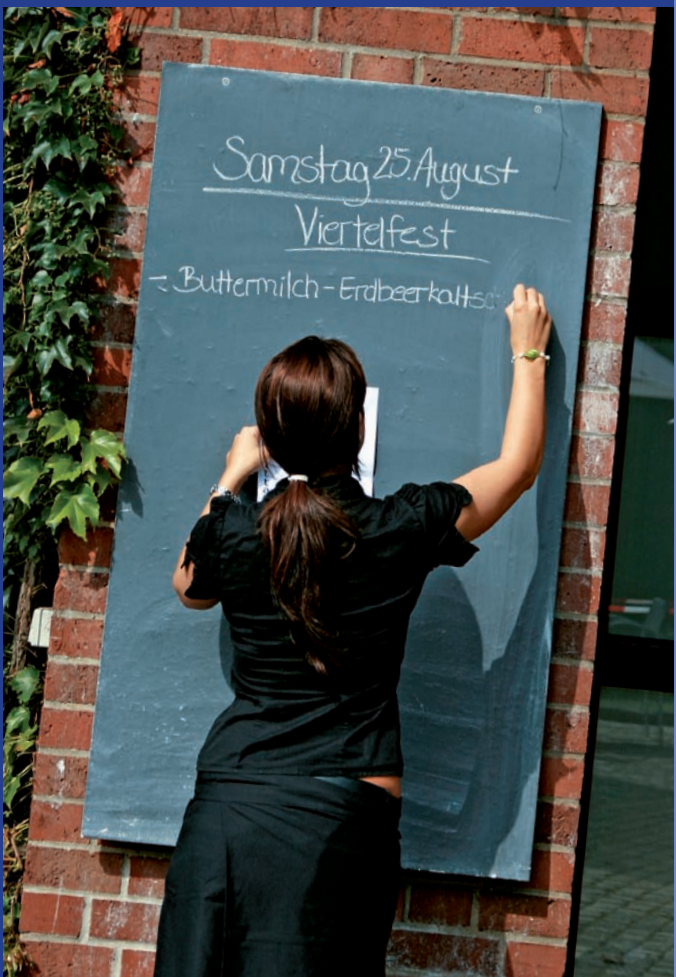 Samstag 25. August
Viertelfest
- Buttermilch-Erdbeerkaltsc